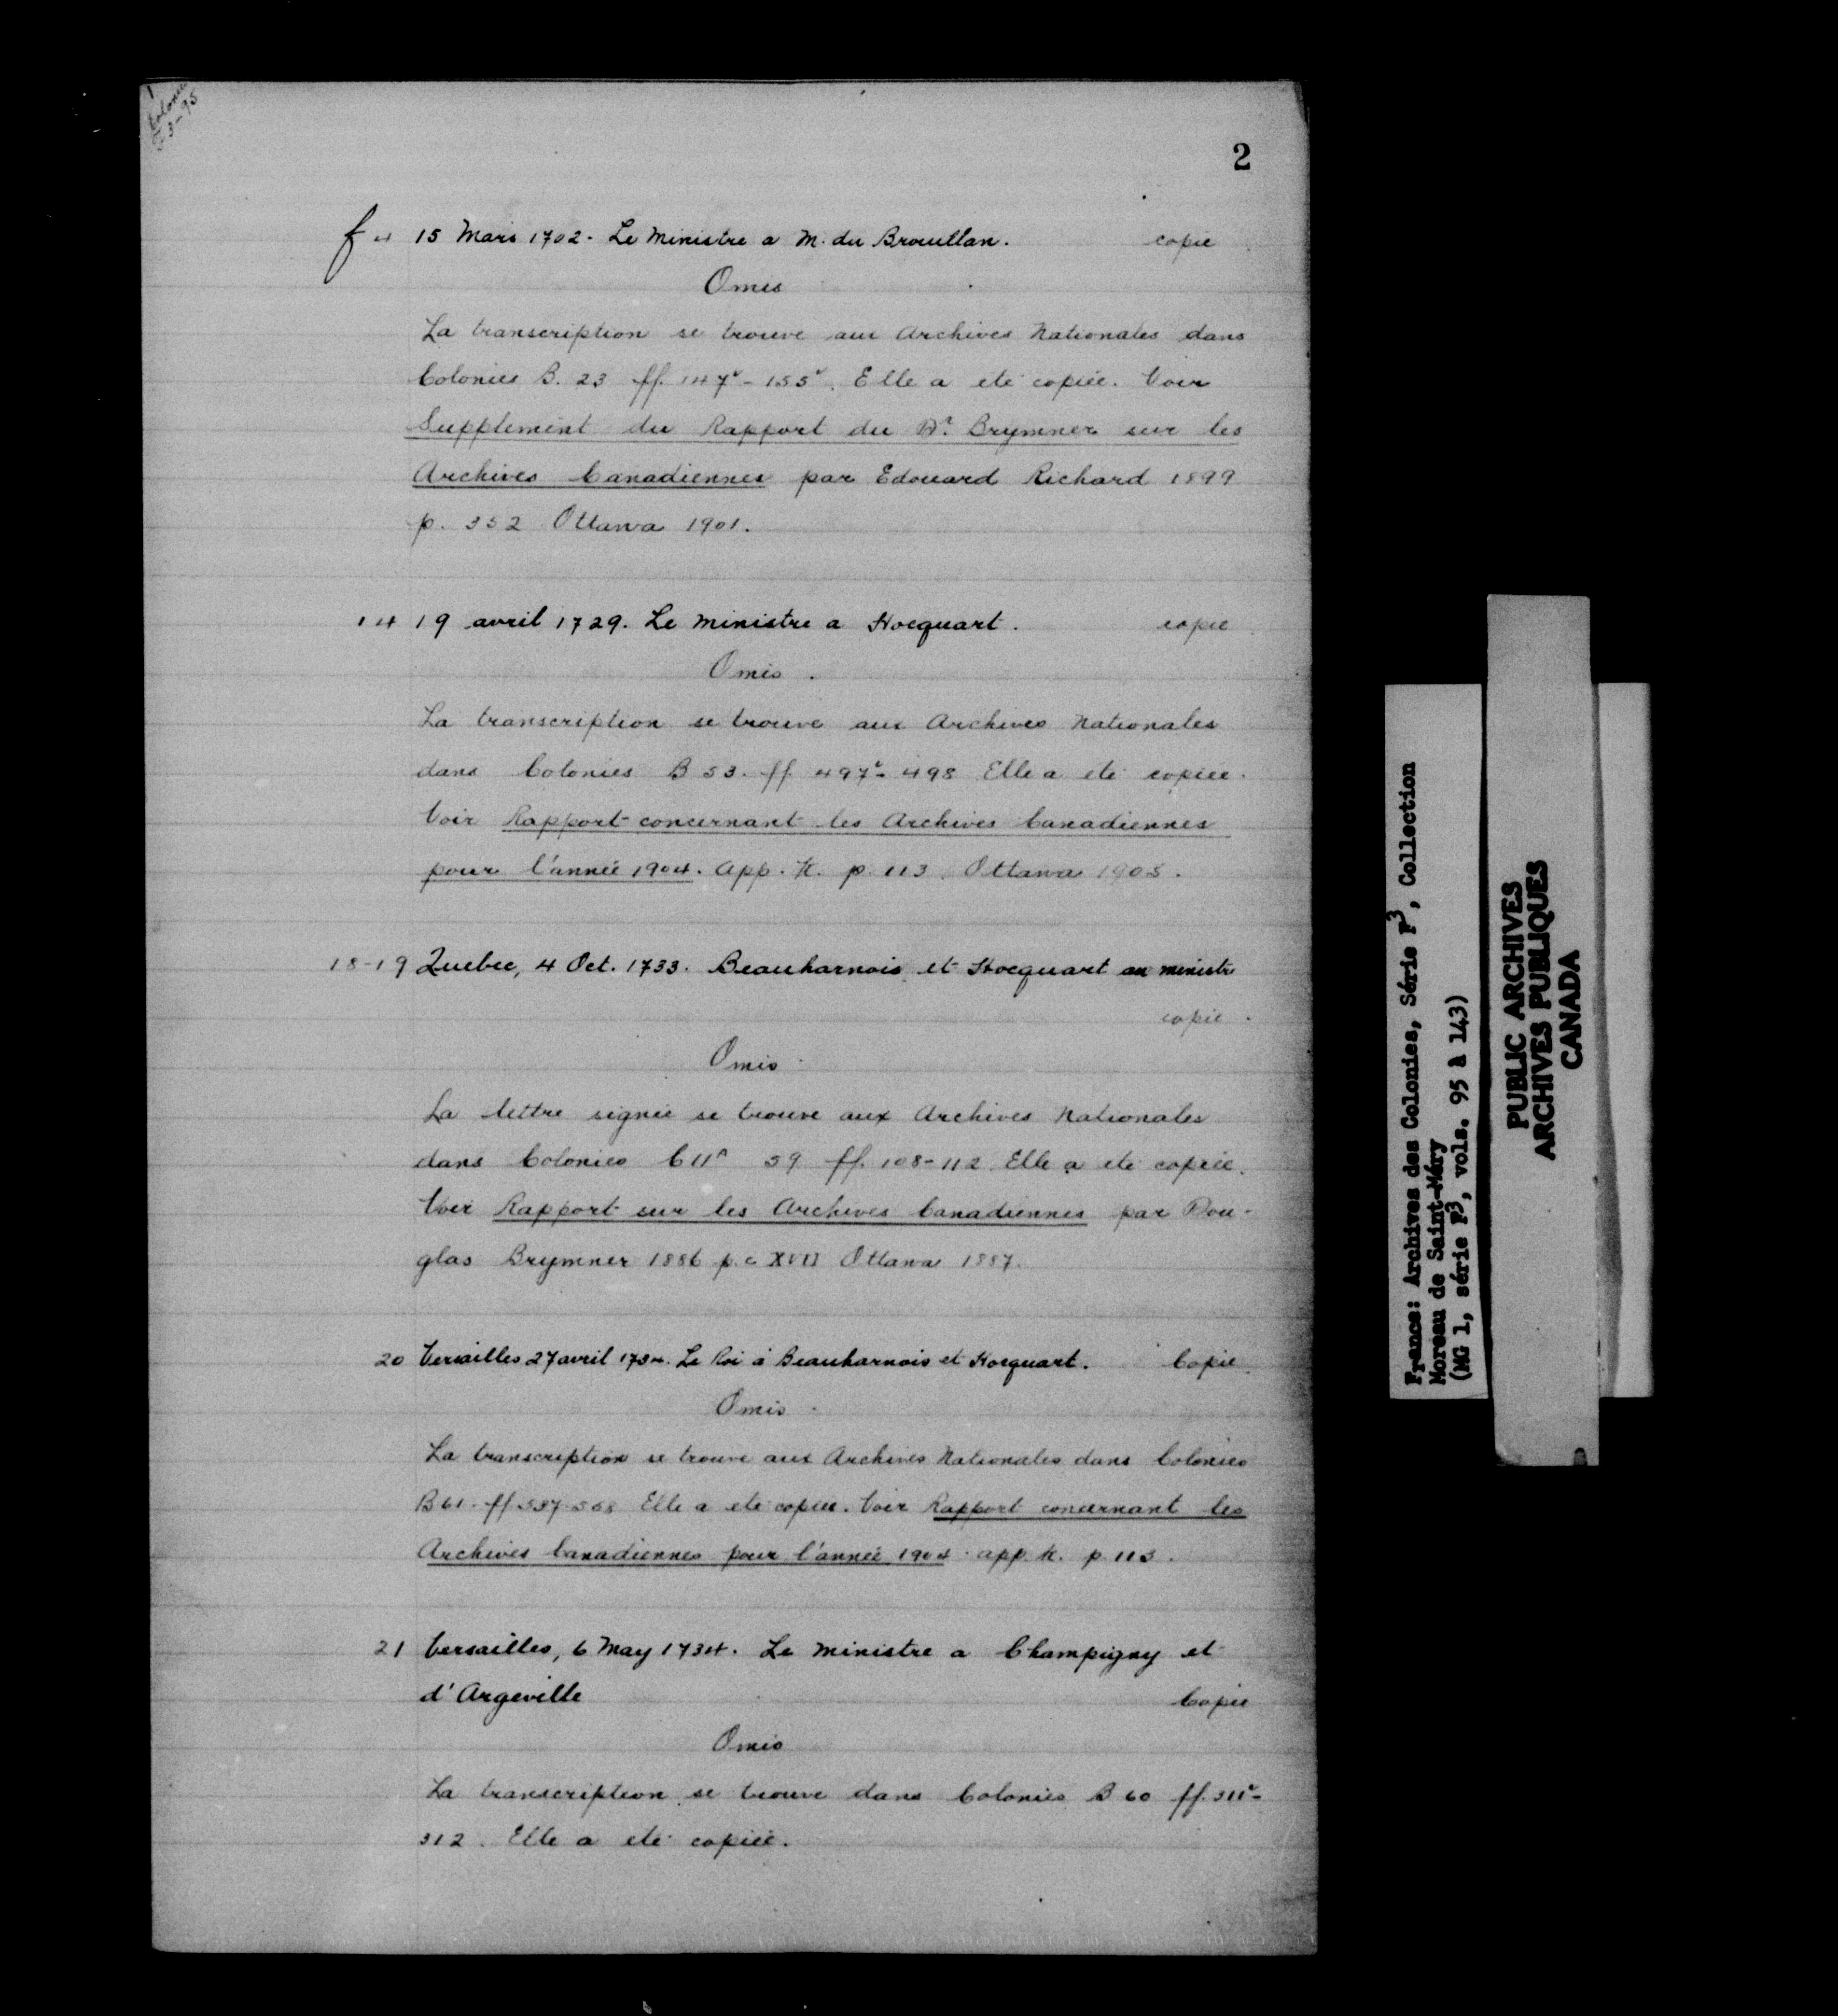 1
Colonies
F 3 - 95
2
f 4 15 Mars 1702. Le Ministre a M. du Brouillan. copie
Omis
La transcription se trouve aux Archives Nationales dans
Colonies B. 23 ff. 147v - 155v. Elle a eté copiée. Voir
Supplement du Rapport du Dr. Brymner sur les
Archives Canadiennes par Edouard Richard 1899
p. 352 Ottawa 1901.
14 19 avril 1729. Le Ministre a Hocquart. copie
Omis.
La transcription se trouve aux Archives Nationales
dans Colonies B 53. ff. 497v - 498 Elle a eté copiée.
Voir Rapport concernant les Archives Canadiennes
pour l'année 1904. App. K. p. 113. Ottawa 1905.
18-19 Quebec, 4 Oct. 1733. Beauharnois et Hocquart au ministre
copie.
Omis
La lettre signée se trouve aux Archives Nationales
dans Colonies C11A 59 ff. 108-112. Elle a eté copiée.
Voir Rapport sur les Archives Canadiennes par Dou-
glas Brymner 1886 p. c XVII Ottawa 1887.
20 Versailles 27 avril 1734. Le Roi à Beauharnois et Hocquart. Copie.
Omis.
La transcription se trouve aux Archives Nationales dans Colonies
B 61. ff. 537-558 Elle a eté copiée. Voir Rapport concernant les
Archives Canadiennes pour l'année 1904. app. K. p. 113.
21 Versailles, 6 May 1734. Le Ministre a Champigny et
d'Argeville Copie
Omis
La transcription se trouve dans Colonies B 60 ff. 311v -
312. Elle a eté copiée.
France: Archives des Colonies, Série F3, Collection
Moreau de Saint-Méry
(MG 1, série F3, vols. 95 à 143)
PUBLIC ARCHIVES
ARCHIVES PUBLIQUES
CANADA